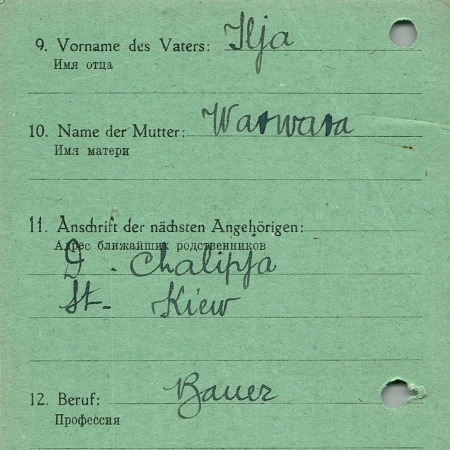 9. Vorname des Vaters: Ilja
Имя отца
10. Name der Mutter: Warwara
Имя матери
11. Anschrift der nächsten Angehörigen:
Адрес ближайших родственников
D. Chalipja
St- Kiew
12. Beruf: Bauer
Профессия